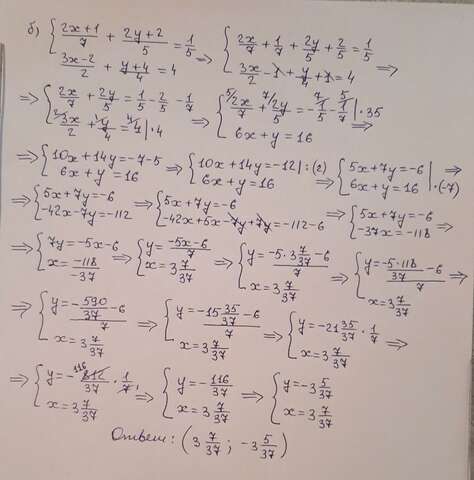 б) { (2x+1)/7 + (2y+2)/5 = 1/5 ; (3x-2)/2 + (y+4)/4 = 4 => { 2x/7 + 1/7 + 2y/5 + 2/5 = 1/5 ; 3x/2 - 1 + y/4 + 1 = 4 =>
=> { 2x/7 + 2y/5 = 1/5 - 2/5 - 1/7 ; 3x/2 + y/4 = 4 | ·4 => { 2x/7 + 2y/5 = -1/5 - 1/7 | ·35 ; 6x+y=16 =>
=> { 10x+14y=-7-5 ; 6x+y=16 => { 10x+14y=-12 |:(2) ; 6x+y=16 => { 5x+7y=-6 ; 6x+y=16 | ·(-7) =>
=> { 5x+7y=-6 ; -42x-7y=-112 => { 5x+7y=-6 ; -42x+5x-7y+7y=-112-6 => { 5x+7y=-6 ; -37x=-118 =>
=> { 7y=-5x-6 ; x=-118/-37 => { y=(-5x-6)/7 ; x=3 7/37 => { y=(-5·3 7/37 -6)/7 ; x=3 7/37 => { y=(-5·118/37 -6)/7 ; x=3 7/37 =>
=> { y=(-590/37 -6)/7 ; x=3 7/37 => { y=(-15 35/37 -6)/7 ; x=3 7/37 => { y=-21 35/37 · 1/7 ; x=3 7/37 =>
=> { y=-812/37 · 1/7 ; x=3 7/37 => { y=-116/37 ; x=3 7/37 => { y=-3 5/37 ; x=3 7/37
Ответ: (3 7/37 ; -3 5/37)